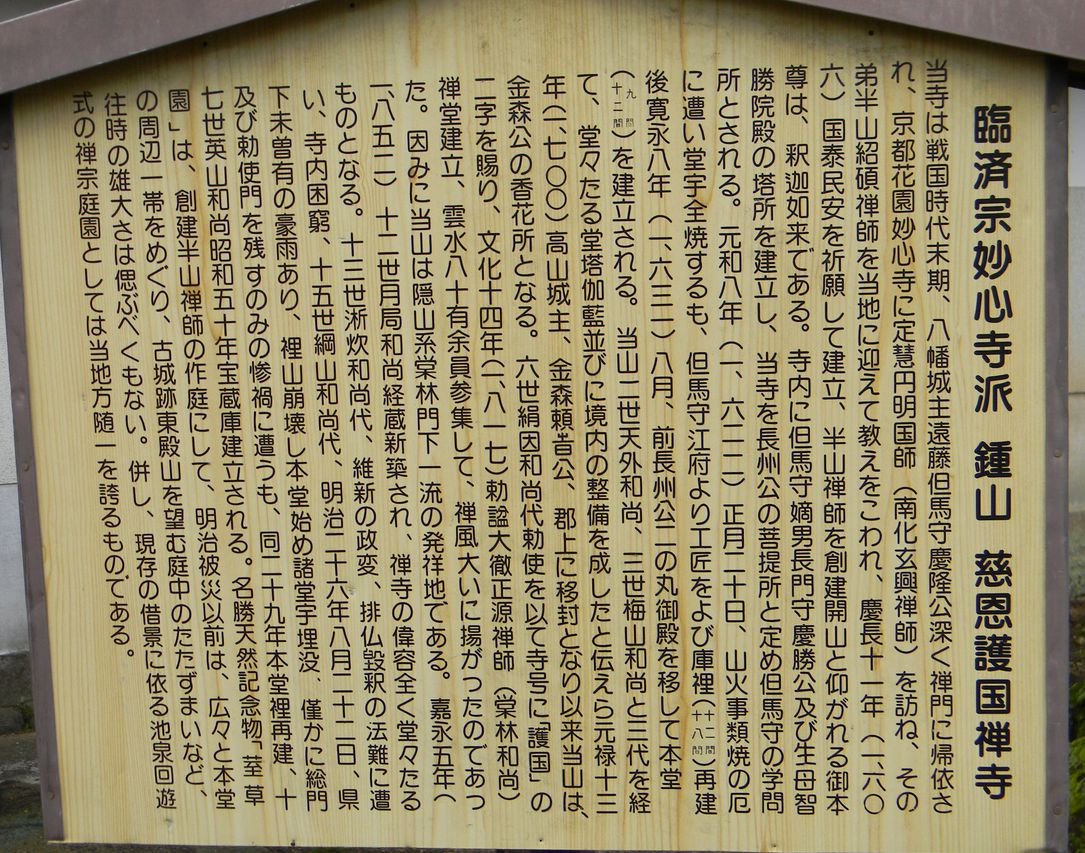 臨済宗妙心寺派 鍾山 慈恩護国禅寺
当寺は戦国時代末期、八幡城主遠藤但馬守慶隆公深く禅門に帰依さ
れ、京都花園妙心寺に定慧円明国師（南化玄興禅師）を訪ね、その
弟半山紹碩禅師を当地に迎えて教えをこわれ、慶長十一年（一、六〇
六）国泰民安を祈願して建立、半山禅師を創建開山と仰がれる御本
尊は、釈迦如来である。寺内に但馬守嫡男長門守慶勝公及び生母智
勝院殿の塔所を建立し、当寺を長州公の菩提所と定め但馬守の学問
所とされる。元和八年（一、六二二）正月二十日、山火事類焼の厄
に遭い堂宇全焼するも、但馬守江府より工匠をよび庫裡（十二間十八間）再建
後寛永八年（一、六三一）八月、前長州公二の丸御殿を移して本堂
（九間十二間）を建立される。当山二世天外和尚、三世梅山和尚と三代を経
て、堂々たる堂塔伽藍並びに境内の整備を成したと伝えら元禄十三
年（一、七〇〇）高山城主、金森頼旹公、郡上に移封となり以来当山は、
金森公の香花所となる。六世絹因和尚代勅使を以て寺号に「護国」の
二字を賜り、文化十四年（一、八一七）勅諡大徹正源禅師（棠林和尚）
禅堂建立、雲水八十有余員参集して、禅風大いに揚がったのであっ
た。因みに当山は隠山系棠林門下一流の発祥地である。嘉永五年（
一、八五二）十二世月局和尚経蔵新築され、禅寺の偉容全く堂々たる
ものとなる。十三世淅炊和尚代、維新の政変、排仏毀釈の法難に遭
い、寺内困窮、十五世綱山和尚代、明治二十六年八月二十二日、県
下未曽有の豪雨あり、裡山崩壊し本堂始め諸堂宇埋没、僅かに総門
及び勅使門を残すのみの惨禍に遭うも、同二十九年本堂裡再建、十
七世英山和尚昭和五十年宝蔵庫建立される。名勝天然記念物「荎草
園」は、創建半山禅師の作庭にして、明治被災以前は、広々と本堂
の周辺一帯をめぐり、古城跡東殿山を望む庭中のたたずまいなど、
往時の雄大さは偲ぶべくもない。併し、現存の借景に依る池泉回遊
式の禅宗庭園としては当地方随一を誇るものである。